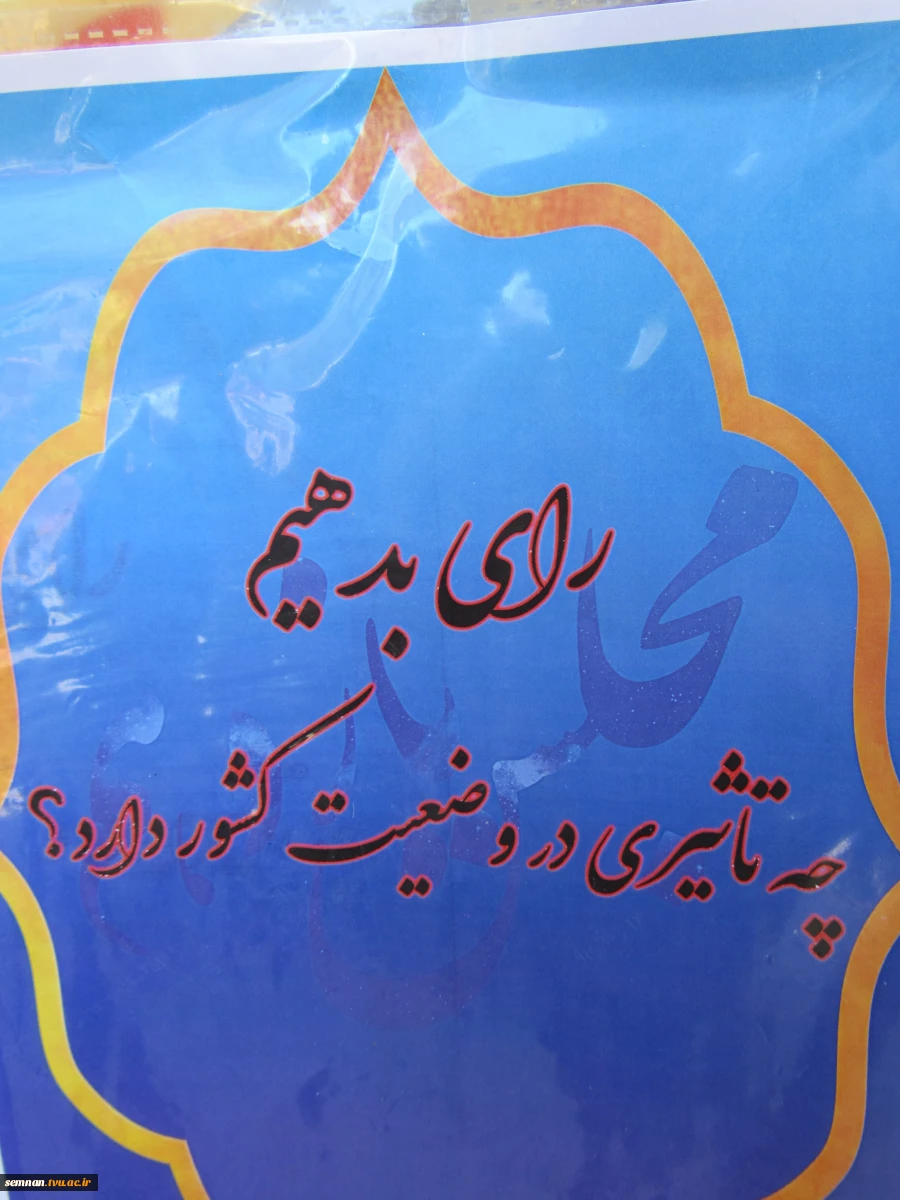 رای بدهیم
چه تاثیری در وضعیت کشور دارد؟
semnan.tvu.ac.ir